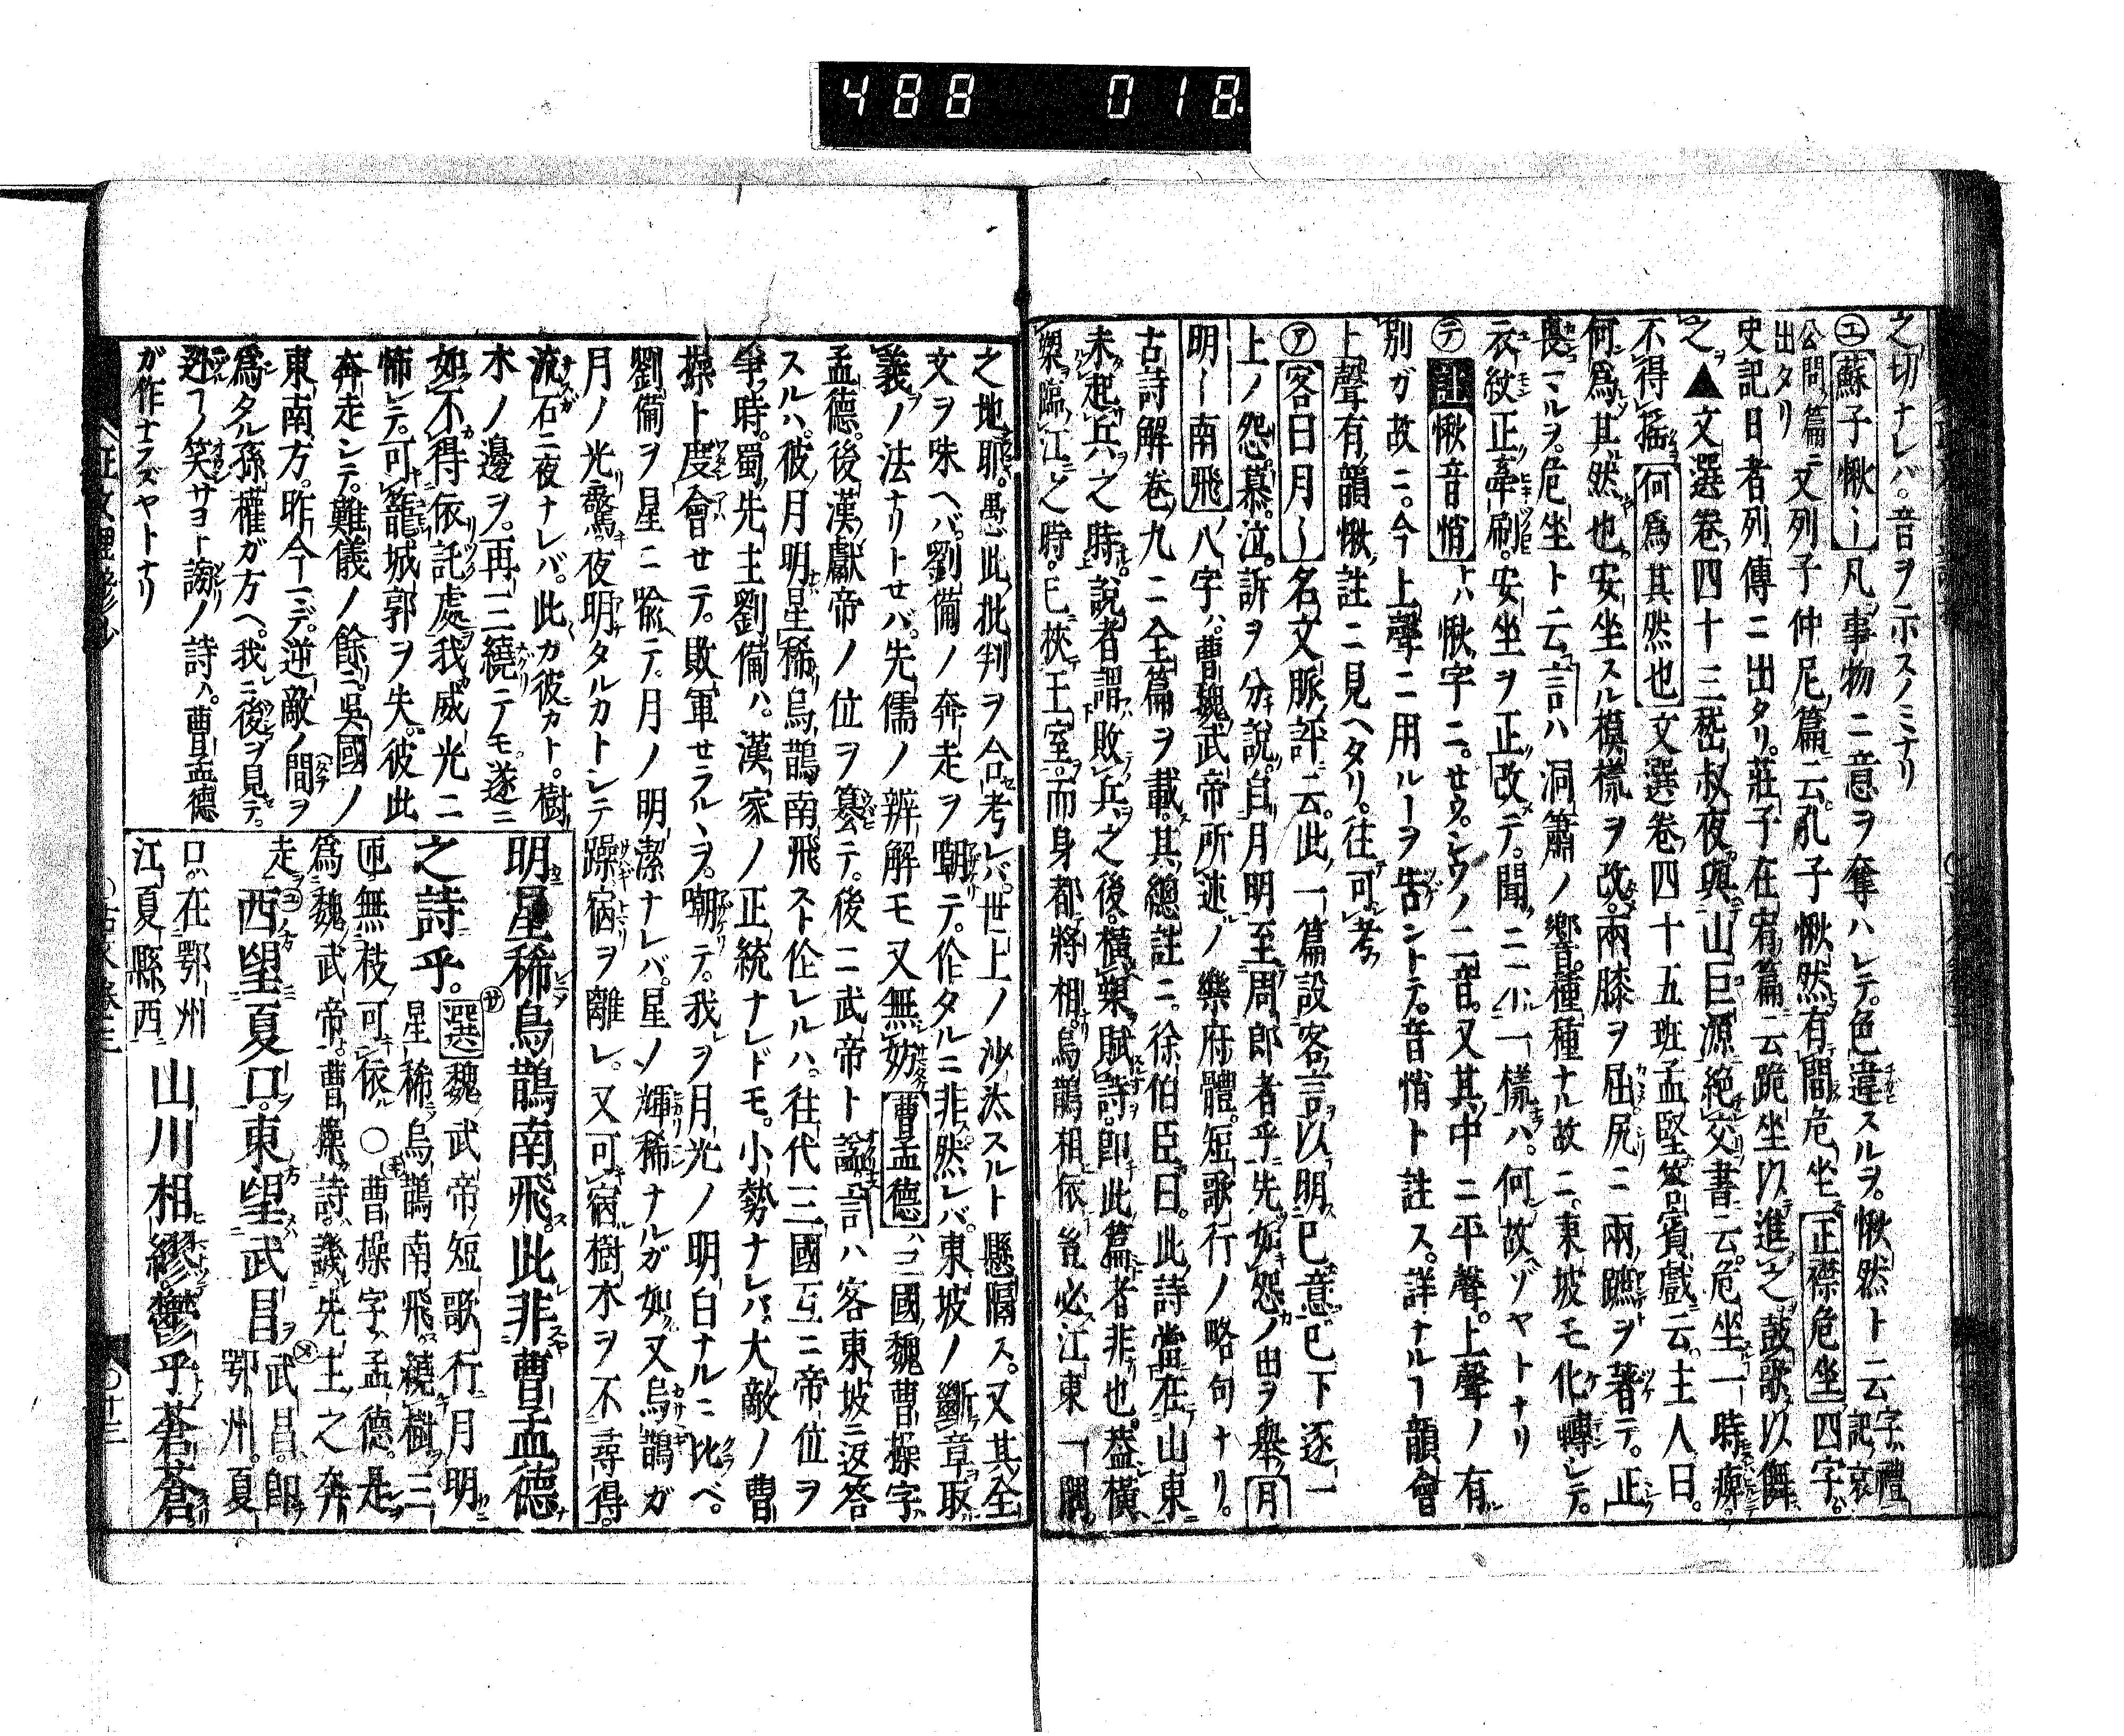 488 018
之切ナレバ。音ヲ示スノミナリ
㋓蘇子愀〻凡事物ニ意ヲ奪ハレテ。色違スルヲ。愀然ト云字ハ禮記哀
公問篇ニ出タリ又列子仲尼篇ニ云。孔子愀然有間危坐正襟危坐四字ハ
史記日者列傳ニ出タリ。莊子在宥篇ニ云跪坐以進之鼓歌以儛
之▲文選卷四十三嵆叔夜與山巨源絶交書云。危坐一時痺
不得搖何爲其然也文選卷四十五班孟堅答賓戲ニ云。主人曰。
何爲其然也安坐スル模樣ヲ改。兩膝ヲ屈尻ニ兩蹠ヲ著テ。正
畏マルヲ。危坐ト云言ハ洞簫ノ響。種種ナル故ニ。東坡モ化轉シテ。
衣紋正牽刷。安坐ヲ正改テ。聞ニ一樣ハ。何故ゾヤトナリ
㋢註愀音悄トハ愀字ニ。セウ。シウノ二音。又其中ニ平聲。上聲ノ有
別ガ故ニ。今上聲ニ用ルヿヲ告ントテ。音悄ト註ス。詳ナルヿ韻會
上聲有韻愀註ニ見ヘタリ。往可考
㋐客曰月〻名文脈評ニ云。此一篇設客言以明已意已下逐一
上ノ怨慕。泣。訴ヲ分說。自月明至周郎者乎先如怨ノ出ヲ擧月
明〻南飛八字ハ。曹魏武帝所述ノ樂府體。短歌行ノ略句ナリ。
古詩解卷九ニ全篇ヲ載。其總註ニ。徐伯臣曰。此詩當在山東
未起兵之時。說者謂敗兵之後。橫槊賦詩。即此篇者非也。蓋橫
槊臨江之時。已挾王室。而身都將相。烏鵲相依豈必江東一隅
之地耶。愚此批判ヲ合考レバ。世上ノ沙汰スルト懸隔ス。又其全
文ヲ味ヘバ。劉備ノ奔走ヲ嘲テ。作タルニ非然レバ。東坡ノ斷章取
義ノ法ナリトセバ。先儒ノ辨解モ又無妨曹孟德ハ三國魏曹操字
孟德。後漢獻帝ノ位ヲ簒テ。後ニ武帝ト謚言ハ客東坡ニ返答
スルハ。彼月明星稀烏鵲南飛スト作レルハ。往代三國互ニ帝位ヲ
爭時。蜀先主劉備ハ。漢家ノ正統ナレドモ。小勢ナレバ。大敵ノ曹
操ト度會セテ。敗軍セラルヽヲ。嘲テ。我ヲ月光ノ明白ナルニ比ベ。
劉備ヲ星ニ喩テ。月ノ明潔ナレバ。星ノ輝稀ナルガ如又烏鵲ガ
月ノ光驚。夜明タルカトシテ躁宿ヲ離レ。又可宿樹木ヲ不尋得。
流石ニ夜ナレバ。此カ彼カト。樹
木ノ邊ヲ。再三繞テモ。遂ニ
如不得依託處我威光ニ
怖レテ。可籠城郭ヲ失。彼此
奔走シテ。難儀ノ餘ニ。吳國ノ
東南方。昨今マデ。逆敵ノ間ヲ
爲タル孫權ガ方ヘ。我ニ後ヲ見テ。
迯フノ笑サヨト謗ノ詩ハ。曹孟德
ガ作ナラズヤトナリ
明星稀烏鵲南飛。此非曹孟德
之詩乎。㋚選魏武帝短歌行月明
星稀烏鵲南飛。繞樹三
匝無枝可依〇曹操字ハ孟德。是
爲魏武帝。曹操詩。譏先主之奔
走㋙西望夏口。東望武昌㋱武昌。即
鄂州。夏
口。在鄂州
江夏縣西山川相繆。鬱乎蒼蒼